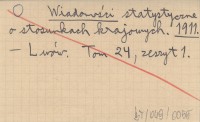 Wiadomości statystyczne
o stosunkach krajowych. 1911.
– Lwów. Tom 24, zeszyt 1.